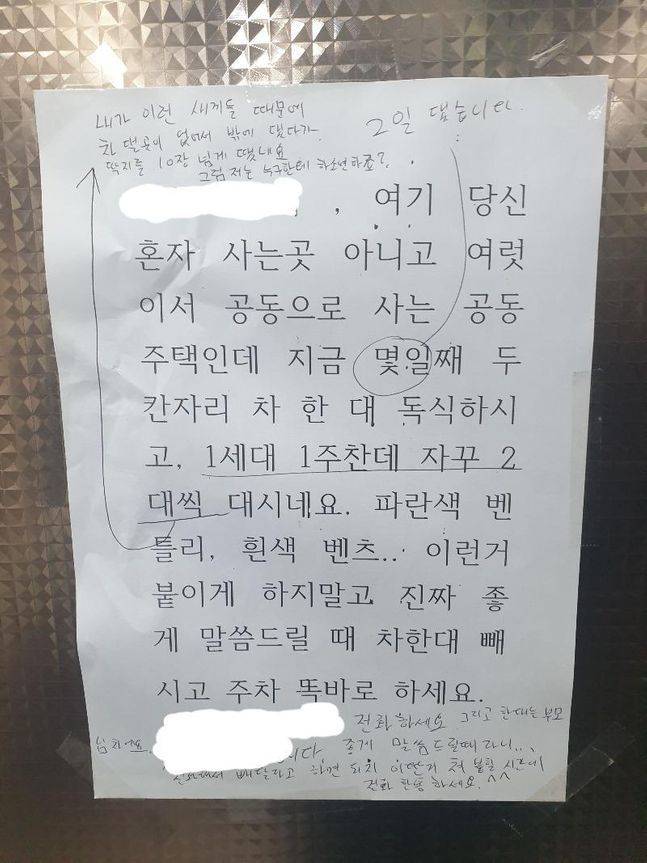 내가 이런 새게들 때문에
차 댈곳이 없어서 밖에 댔다가
딱지를 10장 넘게 뗐네요
그럼 저는 누구한테 하소연하죠?
2일 댔습니다.
, , 여기 당신
혼자 사는곳 아니고 여럿
이서 공동으로 사는 공동
주택인데 지금 몇일째 두
칸자리 차 한 대 독식하시
고, 1세대 1주찬데 자꾸 2
대씩 대시네요. 파란색 벤
틀리, 흰색 벤츠.. 이런거
붙이게 하지말고 진짜 좋
게 말씀드릴 때 차한대 빼
시고 주차 똑바로 하세요.
전화하세요 그리고 한대는 부모
님차에요 좋게 말씀드릴때라니...
빼달라고 하면 되지 이딴거 쳐 붙힐 시간에
전화 한통 하세요.^^